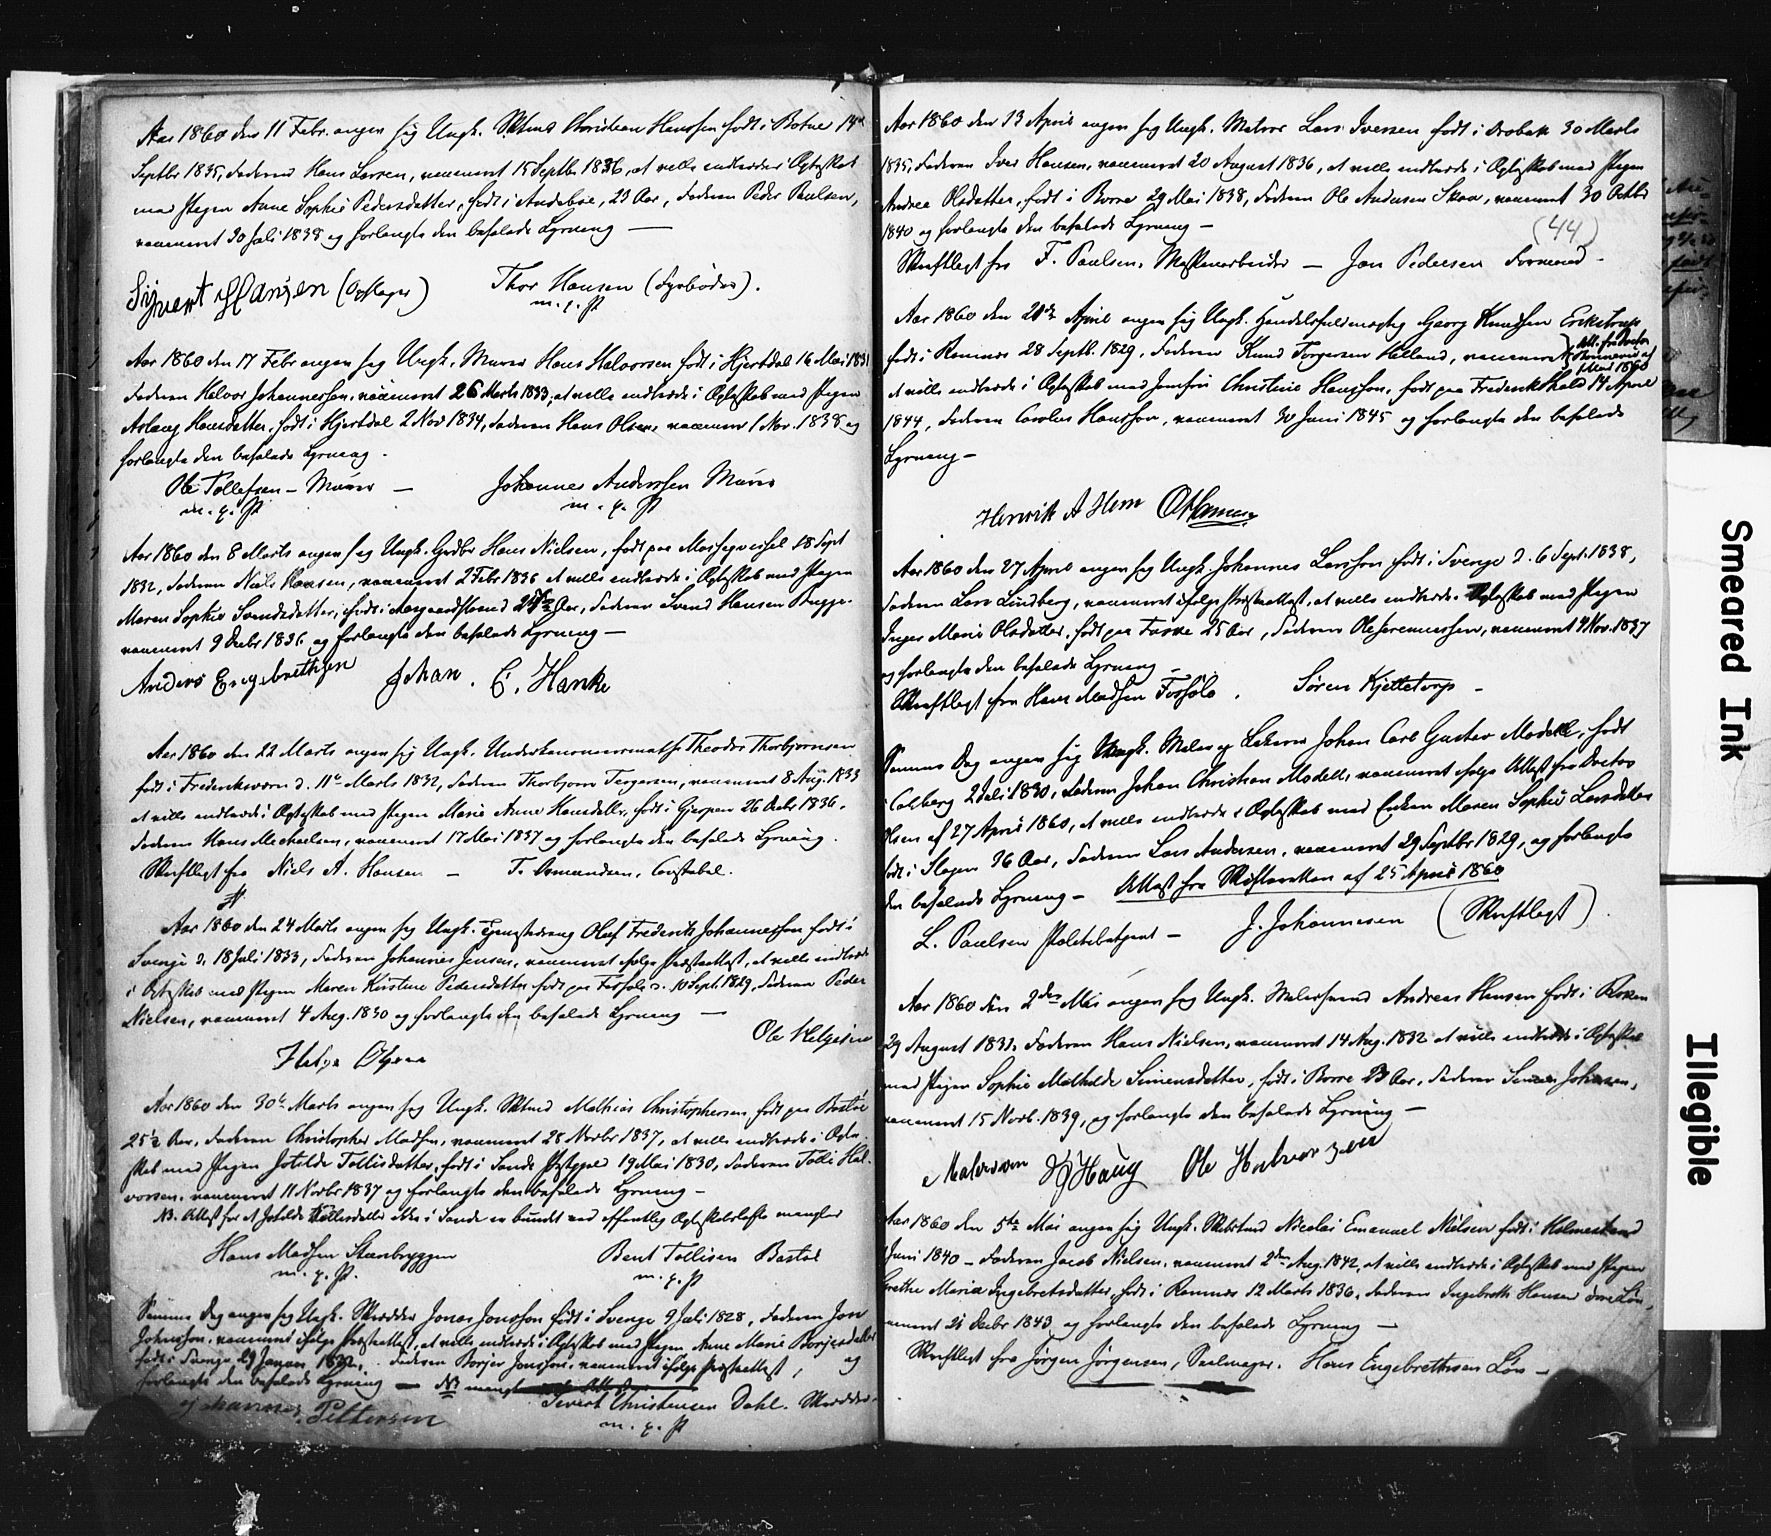 Aar 1860 den 11 Febr. angav sig Ungk. Skbmd Christian Hansen født i Botne 14de
Septbr 1835, Faderen Hans Larsen, vaccineret 15 Septbr 1836, at ville indtræde i Ægteskab
med Pigen Anne Sophie Pedersdatter, født i Andebu, 23 Aar, Faderen Peder Paulsen,
vaccineret 30 Juli 1838 og forlangte den befalede Lysning —
Sivert Hansen (Opsager) Thor Hansen (Fyrbøder).
m. p. P
Aar 1860 den 17 Febr angav sig Ungk. Murer Hans Halvorsen født i Hjertdal 16 Mai 1831
Faderen Halvor Johannessen, vaccineret 26 Marts 1833, at ville indtræde i Ægteskab med Pigen
Aslaug Hansdatter, født i Hjertdal 2 Nov 1834, Faderen Hans Olsen, vaccineret 1 Nov. 1838 og
forlangte den befalede Lysning -
Ole Tollefsen - Murer — Johannes Anderssen Murer
m. p. P m. p. P
Aar 1860 den 8 Marts angav sig Ungk. Hans Nielsen, født paa 18 Sept
1832, Faderen Niels Hansen, vaccineret 2 Febr 1836 at ville indtræde i Ægteskab med Pigen
Maren Sophie Svendsdatter, født i Aar, Faderen Svend Hansen Brygge.
vaccineret 9 Decbr 1836 og forlangte den befalede Lysning —
Anders Engebrethsen Johan. C. Hanke
Aar 1860 den 22 Marts angav sig Ungk. Underkanoneermath Theodor Thorbjørnsen
født i Frederiksværn d. 11te Marts 1832, Faderen Thorbjørn Torgersen, vaccineret 8 Aug. 1833
at ville indtræde i Ægteskab med Pigen Marie Anne Hansdatter, født i Gjerpen 26 Octbr 1836.
Faderen Hans Michaelsen, vaccineret 17 Mai 1837 og forlangte den befalede Lysning.
Skriftligt fra Niels A. Hansen — T. Asmundsen, Constabel.
P
Aar 1860 den 24 Marts angav sig Ungk. Tjenestedreng Oluf Frederik Johannessen født i
Sverige d. 18 Juli 1833, Faderen Johannes Jensen, vaccineret ifølge Præsteattest, at ville indtræde
i Ægteskab med Pigen Maren Kirstine Pedersdatter født paa d. 10 Sept. 1829, Faderen Peder
Nielsen, vaccineret 4 Aug. 1830 og forlangte den befalede Lysning —
Ole Helgesen
Helge Olsen
Aar 1860 den 30te Marts angav sig Ungk. Skbmd Mathias Christophersen, født paa Bastøe
25½ Aar, Faderen Christopher Madsen, vaccineret 28 Novbr 1837, at ville indtræde i Ægte-
skab med Pigen Jotilde Tollisdatter, født i Sande Præstegjeld 19 Mai 1830, Faderen Tolli Hal-
vorsen, vaccineret 11 Novbr 1837 og forlangte den befalede Lysning —
NB. Attest for at Jotilde Tollisdatter ikke i Sande er bundet ved offentlig Ægteskabsløfte mangler
Hans Madsen Steenbryggen Bent Tollisen Bastøe
m. p. P. m. p. P
Samme Dag angav sig Ungk. Skrædder Jonas Jonsson født i Sverige 9 Juli 1828, Faderen Jon
Johnsson, vaccineret ifølge Præsteattest, at ville indtræde i Ægteskab med Pigen Anne Marie Borgersdatter
født i Sverige, 29 Januar 1832, Faderen Borger Jonsson, vaccineret ifølge Præsteattest, og
forlangte den befalede Lysning — NB mangl
Sivert Christensen Dahl. Skrædder
Johannes Pettersen m. p. P
Aar 1860 den 13 April angav sig Ungk. Matros Lars Iversen født i Drøbak 30 Marts
1835, Faderen Iver Hansen, vaccineret 20 August 1836, at ville indtræde i Ægteskab med Pigen
Andrea Olsdatter, født i Borre 29 Mai 1838, Faderen Ole Andersen Skaa, vaccineret 30 Octbr
1840 og forlangte den befalede Lysning —
(44)
Skriftligt fra F. Paulsen, Maskinarbeider — Jon Pedersen Formand -
Aar 1860 den 21de April angav sig Ungk. Handelsfuldmægtig Georg Knudsen Erikstrup
født i Ramnes 28 Septb. 1829, Faderen Knud Torgersen Helland, vaccineret Att. fra Doctor af 1 Mai 1860
at ville indtræde i Ægteskab med Jomfru Christine Hansson, født paa Frederikshald 14 April
1844, Faderen Carolus Hansson, vaccineret 30 Juni 1845 og forlangte den befalede
Lysning —
Henrik A Hem
Aar 1860 den 27 April angav sig Ungk. Johannes Larsson født i Sverige d. 6 Sept. 1838,
Faderen Lars Lindberg, vaccineret ifølge Præsteattest, at ville indtræde i Ægteskab med Pigen
Inger Marie Olsdatter, født paa 25 Aar, Faderen Ole Sørennessen, vaccineret 4 Nov. 1837
og forlangte den befalede Lysning —
Skriftligt fra Hans Madsen. Søren Kjettetorp -
Samme Dag angav sig Ungk. Maler og Lakerer Johan Carl Gustav Modell, født
i Colberg 2 Juli 1830, Faderen Johan Christian Modell, vaccineret ifølge Attest fra Doctor
Olsen af 27 April 1860, at ville indtræde i Ægteskab med Enken Maren Sophie Larsdatter
født i Slagen 36 Aar, Faderen Lars Andersen, vaccineret 29 Septbr 1829, og forlangte
den befalede Lysning — Attest fra Skifteretten af 25 April 1860
L. Paulsen Politibetjent — J. Johannesen (Skriftligt)
Aar 1860 den 2den Mai angav sig Ungk. Malersvend Andreas Hansen født i
29 August 1831, Faderen Hans Nielsen, vaccineret 14 Aug. 1832 at ville indtræde i Ægteskab
med Pigen Sophie Mathilde Simensdatter, født i Borre 23 Aar, Faderen Simen Johansen,
vaccineret 15 Novb. 1839, og forlangte den befalede Lysning —
Haug Ole Halvorsen
Aar 1860 den 5te Mai angav sig Ungk. Skbmd Nicolai Emanuel Nielsen født i Holmestrand
Juni 1840 — Faderen Jacob Nielsen, vaccineret 2den Aug. 1842, at ville indtræde i Ægteskab med Pigen
Grethe Maria Ingebretsdatter, født i Ramnes 12 Marts 1836, Faderen Ingebreth Hansen
vaccineret 21 Decbr 1843 og forlangte den befalede Lysning —
Skriftligt fra Jørgen Jørgensen, Seilmager. Hans Engebrethsen Løn —
Smeared Ink
Illegible